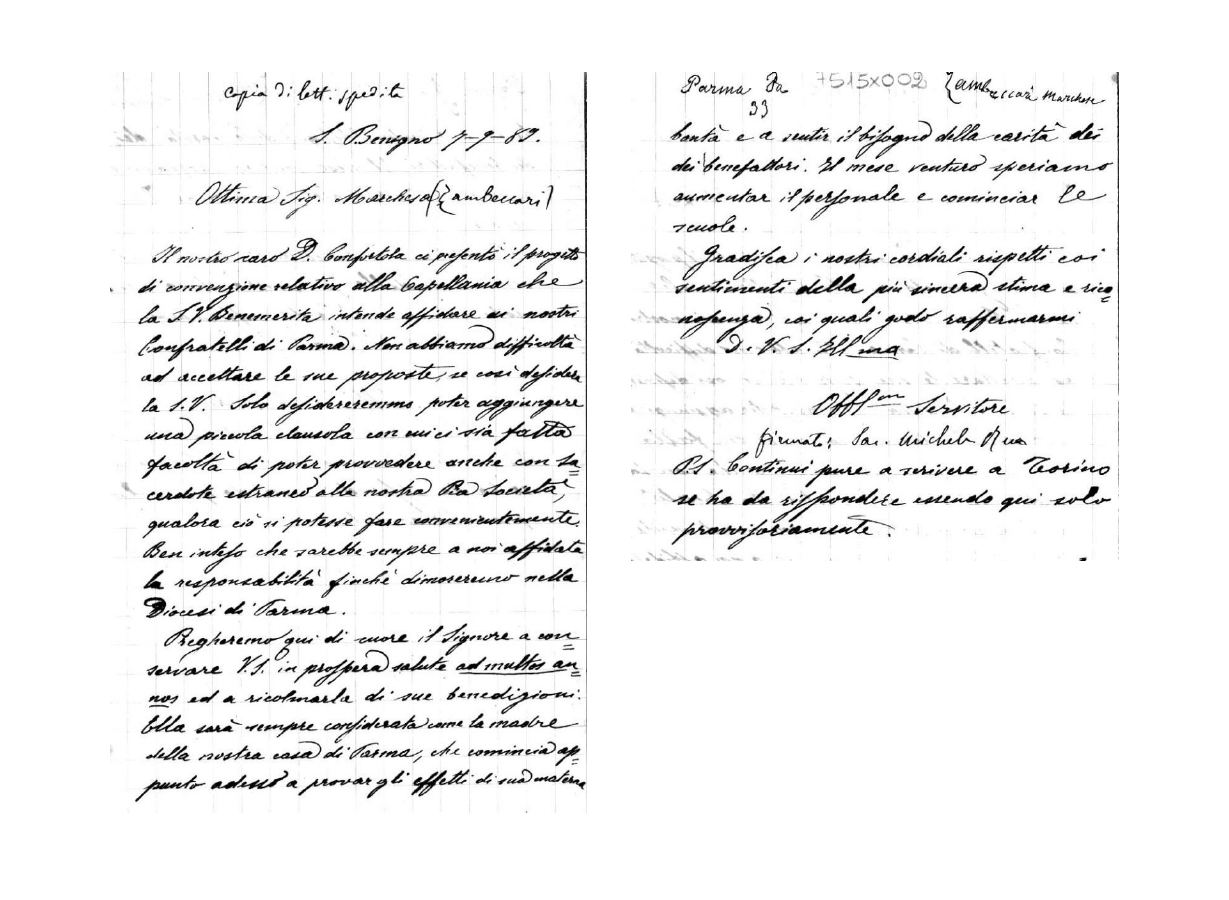 copia di lett. spedita
S. Benigno 7-9-89.
Ottima Sig. Marchesa (Zambeccari)
Il nostro caro D. Confortola ci presentò il progetto
di convenzione relativo alla Capellania che
la S.V. Benemerita intende affidare ai nostri
Confratelli di Parma. Non abbiamo difficoltà
ad accettare le sue proposte, se così desidera
la S.V. Solo desidereremmo poter aggiungere
una piccola clausola con cui ci sia fatta
facoltà di poter provvedere anche con sa=
cerdote estraneo alla nostra Pia Società,
qualora ciò si potesse fare convenientemente.
Ben inteso che sarebbe sempre a noi affidata
la responsabilità finchè dimoreremo nella
Diocesi di Parma.
Pregheremo qui di cuore il Signore a con=
servare V.S. in prospera salute ad multos an=
nos ed a ricolmarla di sue benedizioni.
Ella sarà sempre considerata come la madre
della nostra casa di Parma, che comincia ap=
punto adesso a provar gli effetti di sua materna
Parma Pa 7515x002 Zambeccari Marchese
33
bontà e a sentir il bisogno della carità dei
dei benefattori. Il mese venturo speriamo
aumentar il personale e cominciar le
scuole.
Gradisca i nostri cordiali rispetti coi
sentimenti della più sincera stima e rico=
noscenza, coi quali godo raffermarmi
D. V. S. Ill ma
Obbl mo Servitore
firmato: Sac. Michele Rua
P.S. Continui pure a scrivere a Torino
se ha da rispondere essendo qui solo
provvisoriamente.